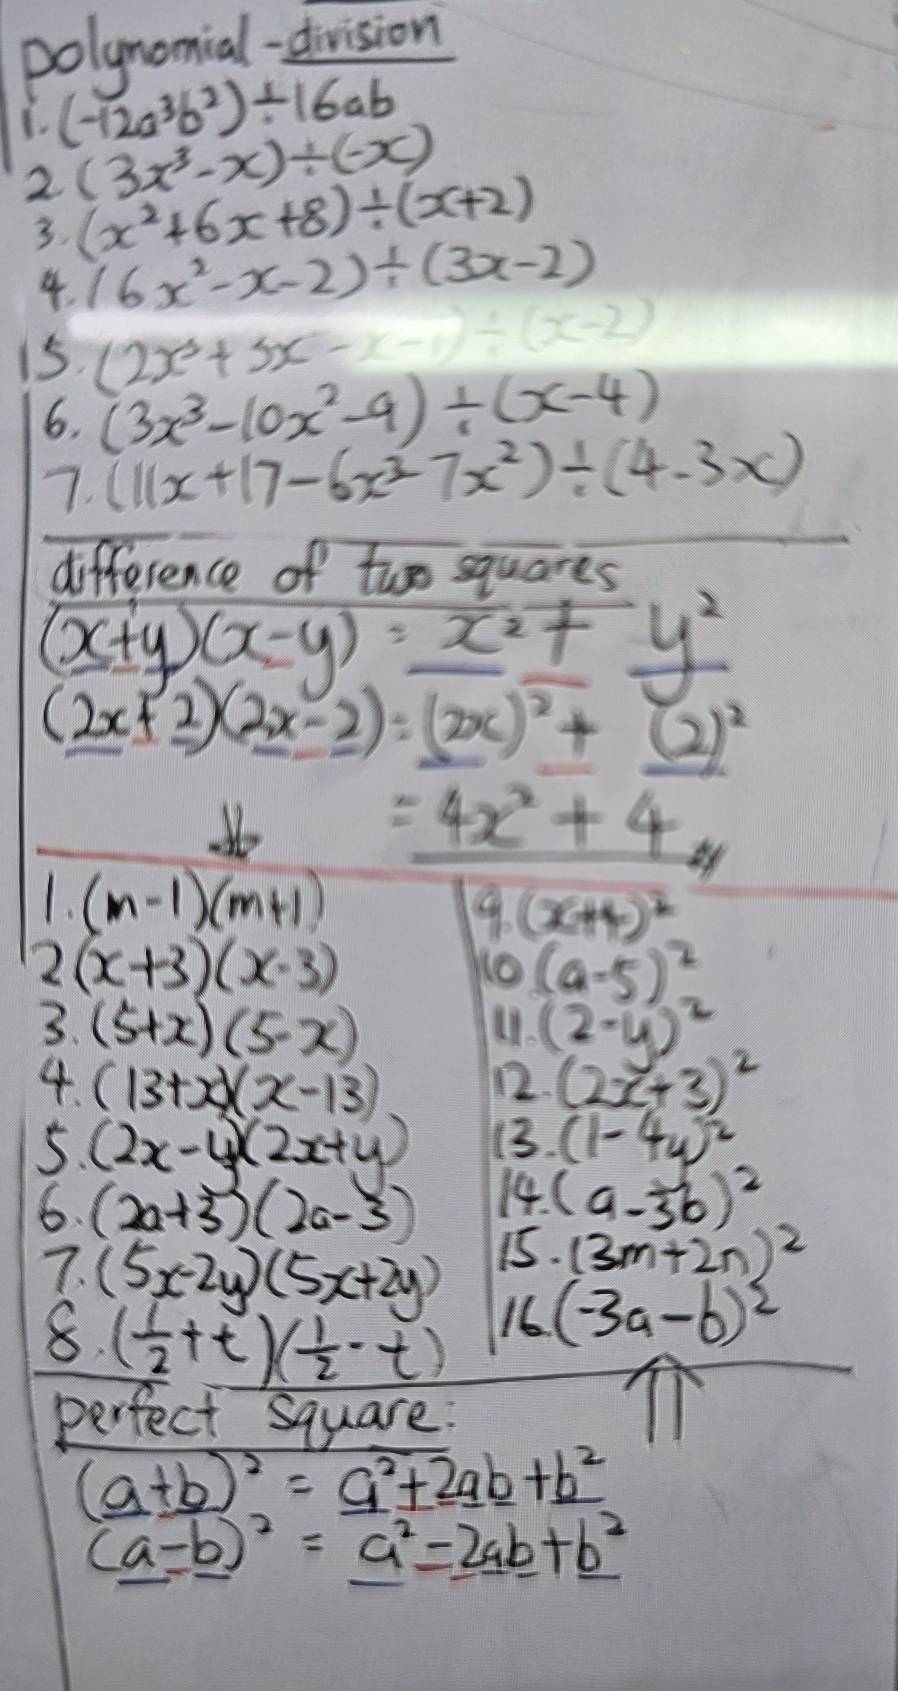 polynomial-division
1. (-12a³b²)÷16ab
2. (3x³-x)÷(-x)
3. (x²+6x+8)÷(x+2)
4. (6x²-x-2)÷(3x-2)
5. (2x³+3x -x-1)÷(x-2)
6. (3x³-10x²-9)÷(x-4)
7. (11x+17-6x³-7x²)÷(4-3x)
difference of two squares
(x+y)(x-y) = x² + y²
(2x+2)(2x-2) = (2x)² + (2)²
= 4x² + 4
1. (m-1)(m+1)
2 (x+3)(x-3)
3. (5+x)(5-x)
4. (13+x)(x-13)
5. (2x-y)(2x+y)
6. (2a+3)(2a-3)
7. (5x-2y)(5x+2y)
8. (1/2+t)(1/2-t)
9. (x+4)²
10 (a-5)²
11. (2-y)²
12. (2x+3)²
13. (1-4y)²
14. (a-3b)²
15. (3m+2n)²
16. (-3a-b)²
perfect square:
(a+b)² = a²+2ab+b²
(a-b)² = a²-2ab+b²